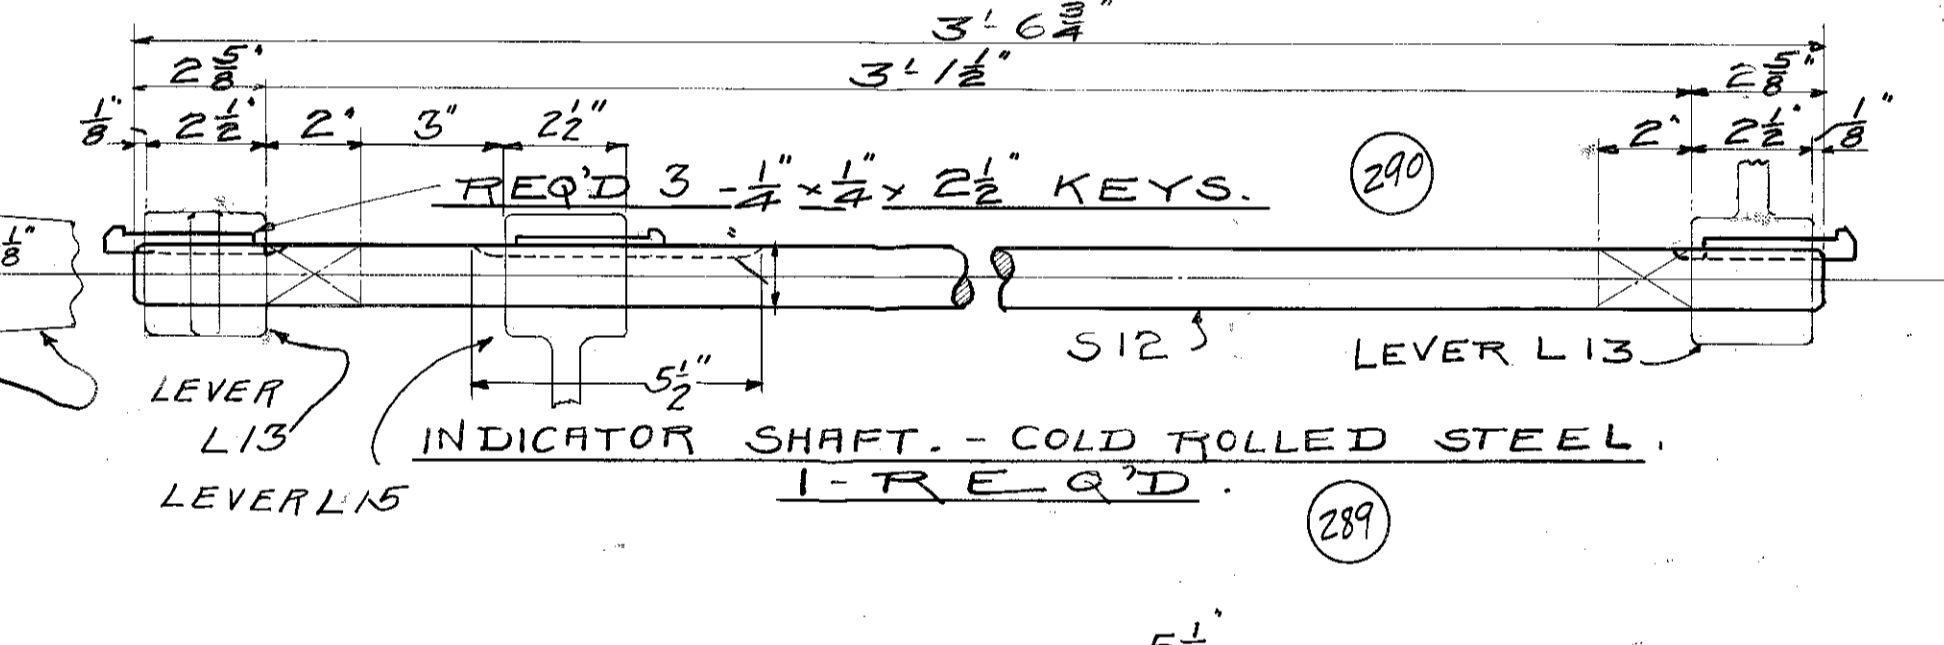 3'-6 3/4"
2 5/8" 3'-1 1/2" 2 5/8"
1/8" 2 1/2" 2" 3" 2 1/2" 2" 2 1/2" 1/8"
290
REQ'D 3 - 1/4" x 1/4" x 2 1/2" KEYS.
1/8"
S12
LEVER L13
5 1/2"
LEVER
L13
LEVER L15
INDICATOR SHAFT. - COLD ROLLED STEEL.
1 - REQ'D.
289